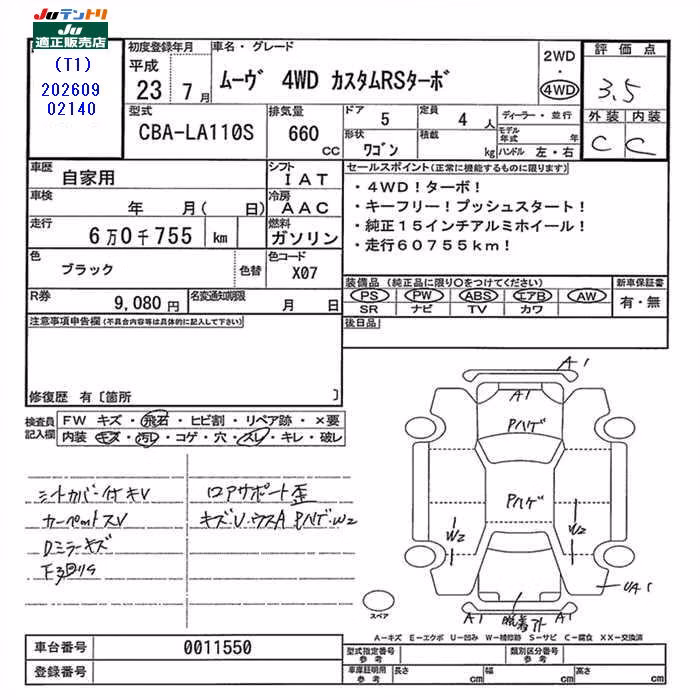 JUテントリ
JU
適正販売店
(T1)
202609
02140
初度登録年月
平成
23 7月
車名・グレード
ムーヴ 4WD カスタムRSターボ
2WD
4WD
評価点
3.5
外装 内装
C C
型式
CBA-LA110S
排気量
660
CC
ドア
5
定員
4 人
形状
ワゴン
積載
kg
ディーラー・並行
モデル年式 年
ハンドル 左・右
車歴
自家用
シフト
IAT
車検
年 月( 日)
冷房
AAC
走行
6万0千755 km
燃料
ガソリン
色
ブラック
色替
色コード
X07
R券
9,080 円
名変通知期限
月 日
セールスポイント(正常に機能するものに限ります)
・4WD!ターボ!
・キーフリー!プッシュスタート!
・純正15インチアルミホイール!
・走行60755km!
装備品(純正品に限り○をつけてください)
PS PW ABS エアB AW
SR ナビ TV カワ
新車保証書
有・無
後日品
注意事項申告欄(不具合内容等は具体的に記入して下さい)
修復歴 有〔箇所 〕
検査員
記入欄
FW キズ・飛石・ヒビ割・リペア跡・×要
内装 キズ・汚レ・コゲ・穴・スレ・キレ・破レ
シートカバー付キV
カーペットスV
Dミラーキズ
ロアサポート歪
キズU・ウスA Pハゲ・W2
A1
A1
Pハゲ
Pハゲ
W2
W2
UA1
A1
A1
スペア
A-キズ E-エクボ U-凹み W-補修跡 S-サビ C-腐食 XX-交換済
車台番号
0011550
登録番号
型式指定番号
参考
類別区分番号
参考
車庫証明用
参考
長さ cm
幅 cm
高さ cm